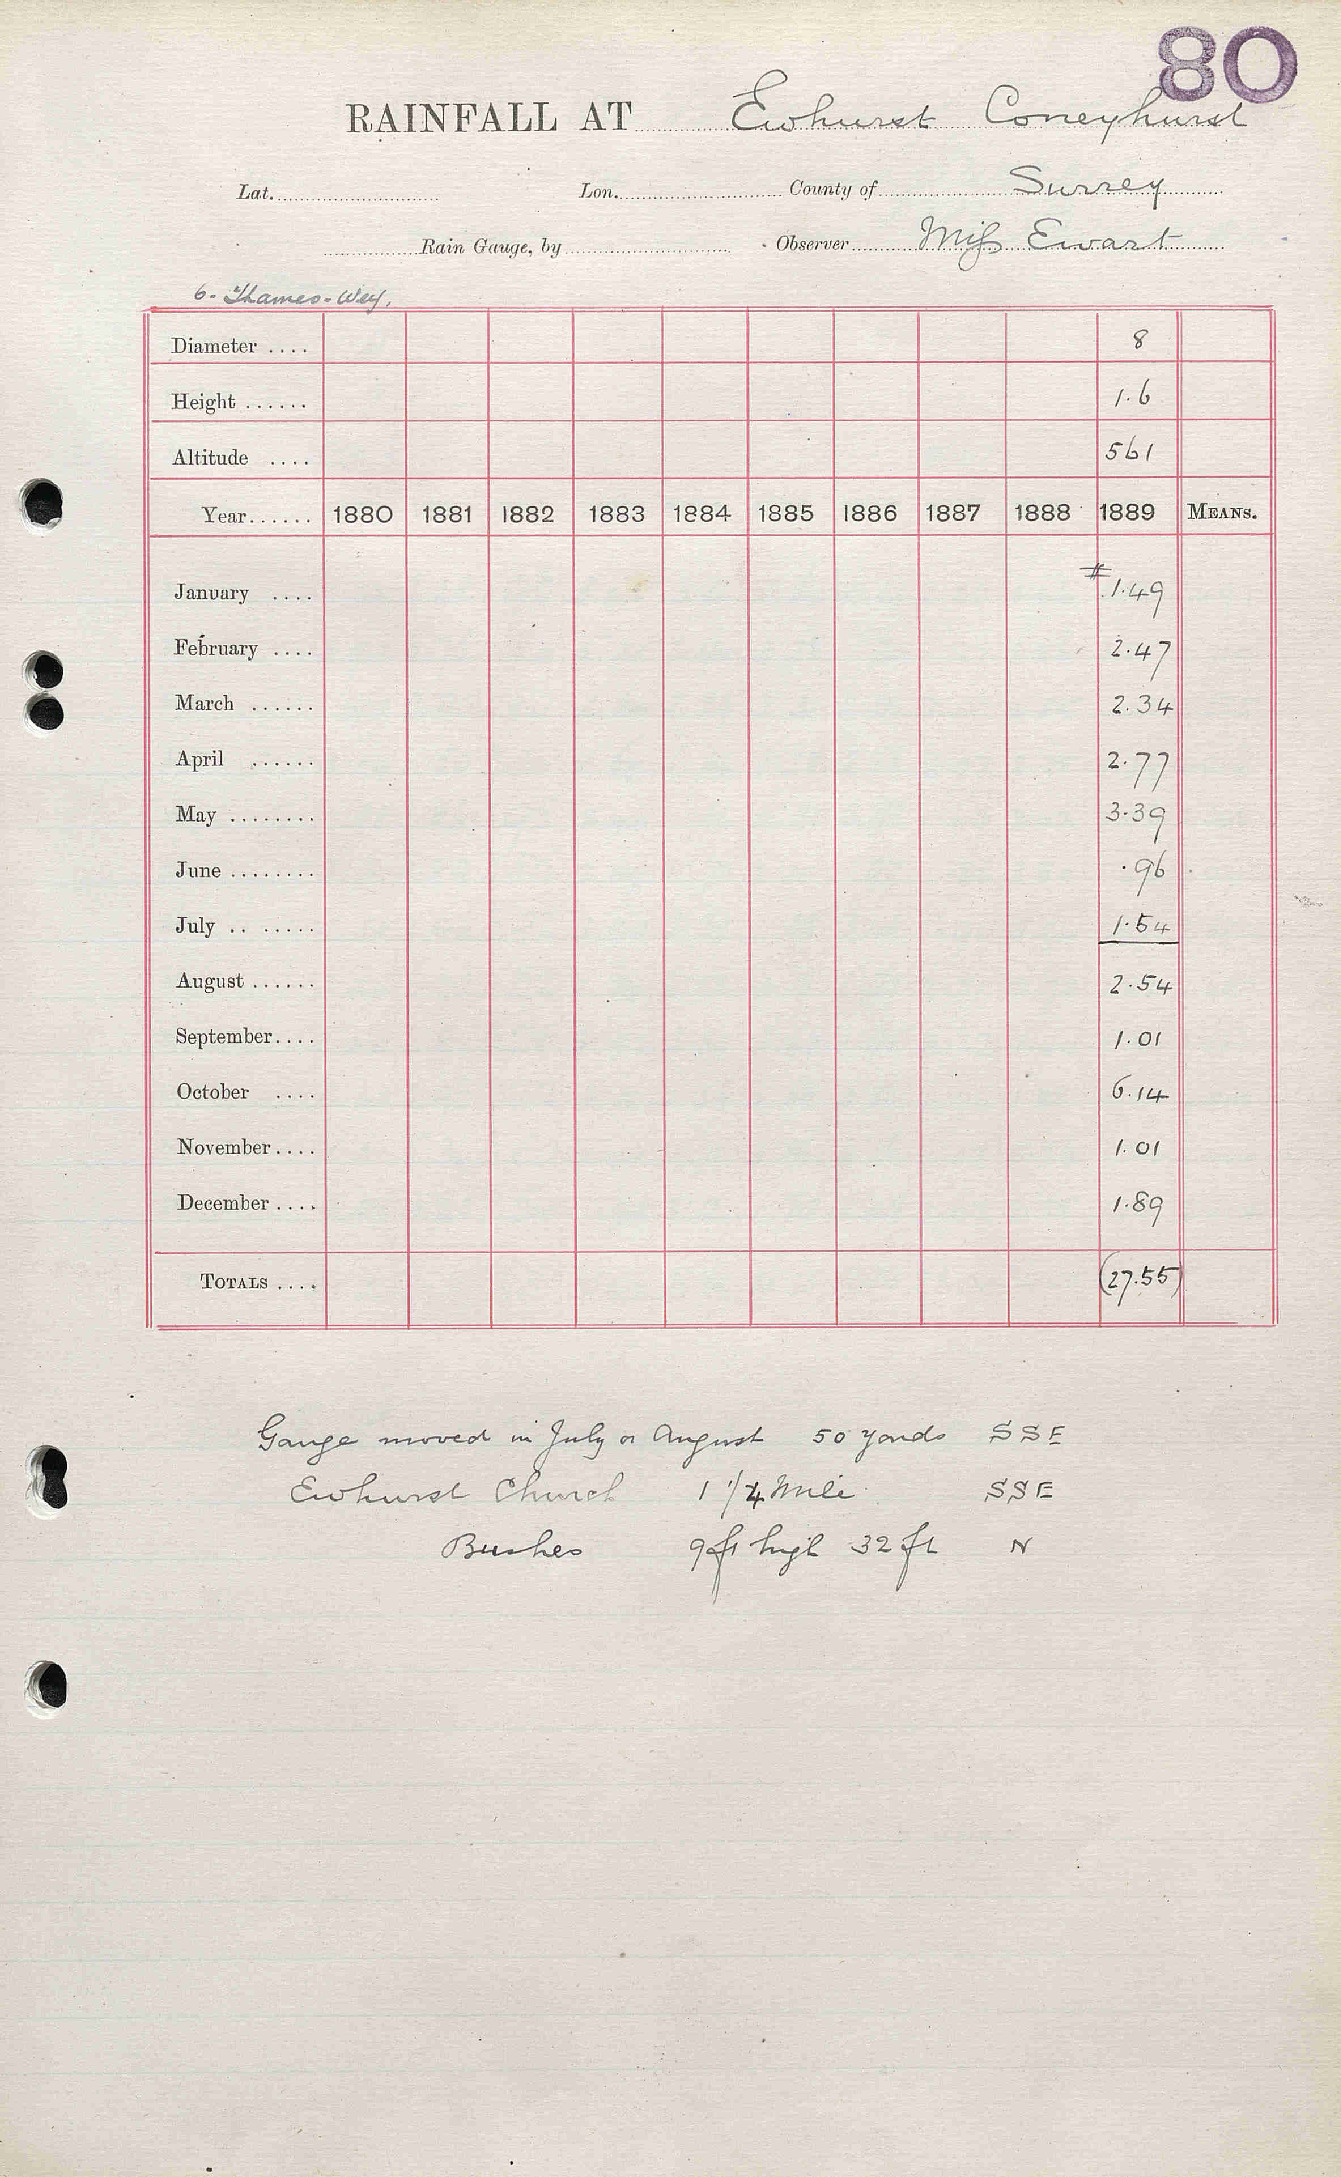 80
RAINFALL AT Ewhurst Coneyhurst
Lat. Lon. County of Surrey
Rain Gauge, by Observer Miss Ewart
6. Thames-Wey.
Diameter .... 8
Height ...... 1.6
Altitude .... 561
Year...... 1880 1881 1882 1883 1884 1885 1886 1887 1888 1889 MEANS.
January .... # 1.49
February .... 2.47
March ...... 2.34
April ...... 2.77
May ........ 3.39
June ........ .96
July .. ..... 1.54
August ...... 2.54
September.... 1.01
October .... 6.14
November.... 1.01
December.... 1.89
TOTALS .... (27.55)
Gauge moved in July or August 50 yards SSE
Ewhurst Church 1 1/4 Mile SSE
Bushes 9ft high 32 ft N